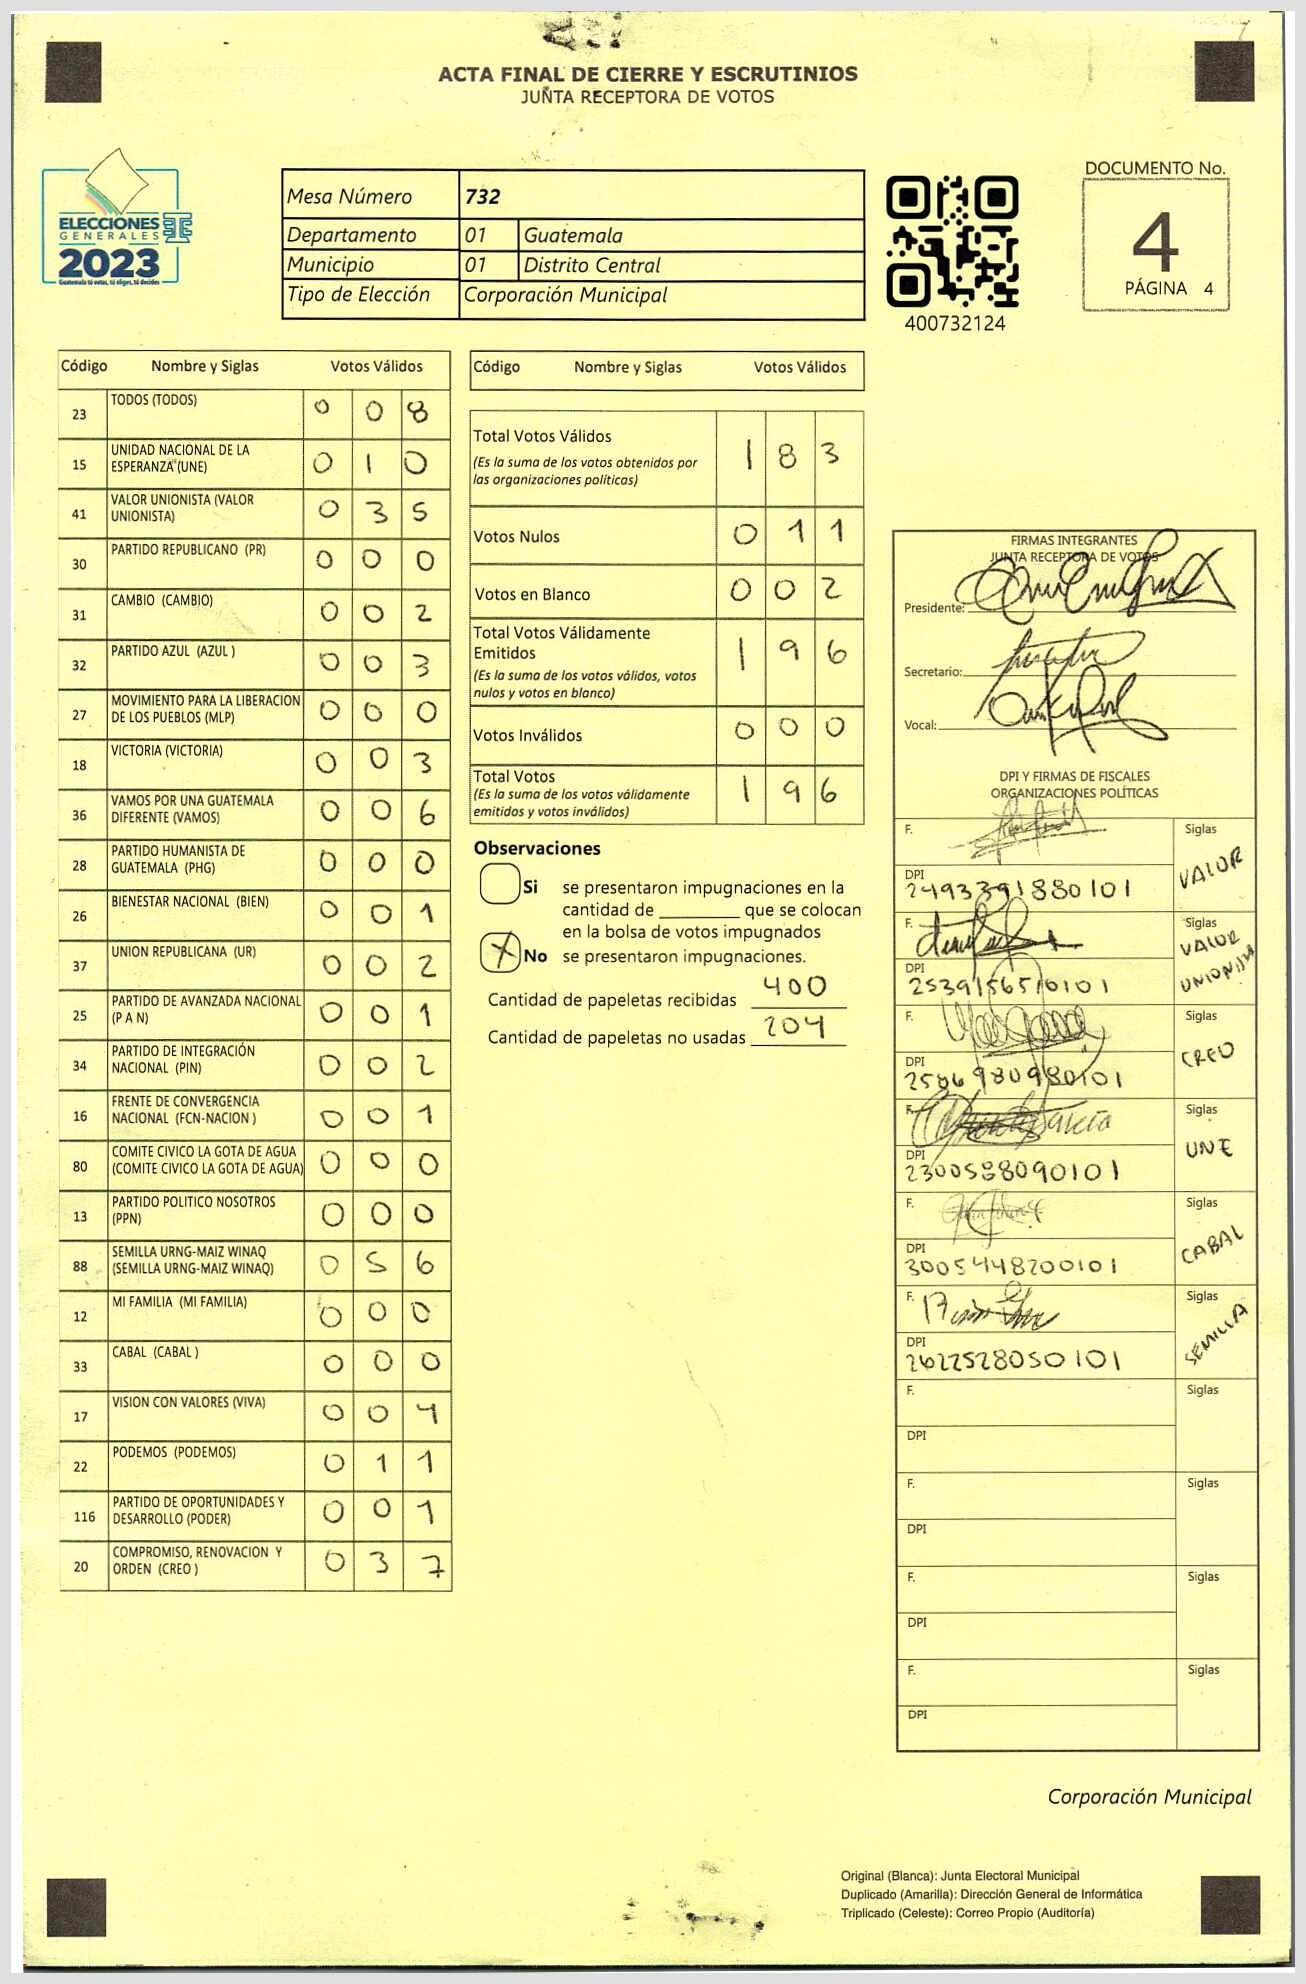 ACTA FINAL DE CIERRE Y ESCRUTINIOS
JUNTA RECEPTORA DE VOTOS
ELECCIONES
GENERALES
2023
Guatemala tú votas, tú eliges, tú decides
Mesa Número 732
Departamento 01 Guatemala
Municipio 01 Distrito Central
Tipo de Elección Corporación Municipal
400732124
DOCUMENTO No.
4
PÁGINA 4
Código Nombre y Siglas Votos Válidos
23 TODOS (TODOS) 0 0 8
15 UNIDAD NACIONAL DE LA
ESPERANZA (UNE) 0 1 0
41 VALOR UNIONISTA (VALOR
UNIONISTA) 0 3 5
30 PARTIDO REPUBLICANO (PR) 0 0 0
31 CAMBIO (CAMBIO) 0 0 2
32 PARTIDO AZUL (AZUL ) 0 0 3
27 MOVIMIENTO PARA LA LIBERACION
DE LOS PUEBLOS (MLP) 0 0 0
18 VICTORIA (VICTORIA) 0 0 3
36 VAMOS POR UNA GUATEMALA
DIFERENTE (VAMOS) 0 0 6
28 PARTIDO HUMANISTA DE
GUATEMALA (PHG) 0 0 0
26 BIENESTAR NACIONAL (BIEN) 0 0 1
37 UNION REPUBLICANA (UR) 0 0 2
25 PARTIDO DE AVANZADA NACIONAL
(P A N) 0 0 1
34 PARTIDO DE INTEGRACIÓN
NACIONAL (PIN) 0 0 2
16 FRENTE DE CONVERGENCIA
NACIONAL (FCN-NACION ) 0 0 1
80 COMITE CIVICO LA GOTA DE AGUA
(COMITE CIVICO LA GOTA DE AGUA) 0 0 0
13 PARTIDO POLITICO NOSOTROS
(PPN) 0 0 0
88 SEMILLA URNG-MAIZ WINAQ
(SEMILLA URNG-MAIZ WINAQ) 0 5 6
12 MI FAMILIA (MI FAMILIA) 0 0 0
33 CABAL (CABAL ) 0 0 0
17 VISION CON VALORES (VIVA) 0 0 4
22 PODEMOS (PODEMOS) 0 1 1
116 PARTIDO DE OPORTUNIDADES Y
DESARROLLO (PODER) 0 0 1
20 COMPROMISO, RENOVACION Y
ORDEN (CREO ) 0 3 7
Código Nombre y Siglas Votos Válidos
Total Votos Válidos 1 8 3
(Es la suma de los votos obtenidos por
las organizaciones políticas)
Votos Nulos 0 1 1
Votos en Blanco 0 0 2
Total Votos Válidamente
Emitidos 1 9 6
(Es la suma de los votos válidos, votos
nulos y votos en blanco)
Votos Inválidos 0 0 0
Total Votos 1 9 6
(Es la suma de los votos válidamente
emitidos y votos inválidos)
Observaciones
Si se presentaron impugnaciones en la
cantidad de ________ que se colocan
en la bolsa de votos impugnados
X No se presentaron impugnaciones.
Cantidad de papeletas recibidas 400
Cantidad de papeletas no usadas 204
FIRMAS INTEGRANTES
JUNTA RECEPTORA DE VOTOS
Presidente:
Secretario:
Vocal:
DPI Y FIRMAS DE FISCALES
ORGANIZACIONES POLÍTICAS
F. Siglas
VALOR
DPI
2493391880101
F. Siglas
VALOR
UNIONISTA
DPI
2539156510101
F. Siglas
CREO
DPI
2586980980101
F. Siglas
UNE
DPI
2300588090101
F. Siglas
CABAL
DPI
3005448200101
F. Siglas
SEMILLA
DPI
2622528050101
F. Siglas
DPI
F. Siglas
DPI
F. Siglas
DPI
F. Siglas
DPI
Corporación Municipal
Original (Blanca): Junta Electoral Municipal
Duplicado (Amarilla): Dirección General de Informática
Triplicado (Celeste): Correo Propio (Auditoría)